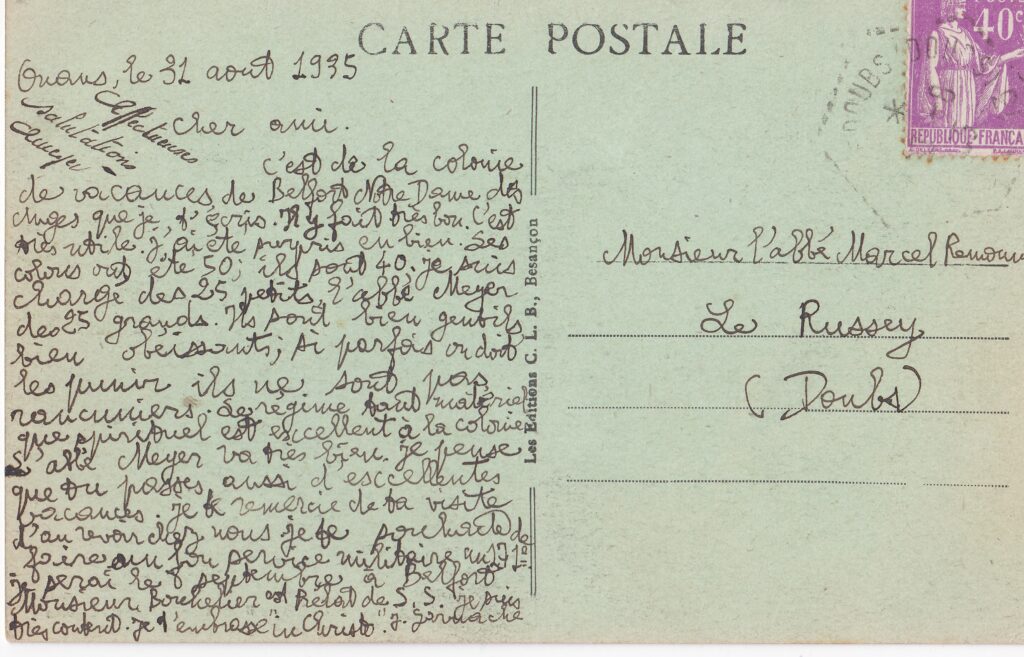 CARTE POSTALE
Onans, le 31 aout 1935
affectueuses
salutations
Cher ami.
C'est de la colonie
de vacances de Belfort Notre Dame des
Anges que je t'écris. Il y fait très bon. C'est
très utile. J'ai été surpris en bien. Les
colons ont été 50; ils sont 40. je suis
chargé des 25 petits, l'abbé Meyer
des 25 grands. Ils sont bien gentils,
bien obeissants; si parfois on doit
les punir ils ne sont pas
rancuniers. Le régime tant matériel
que spirituel est excellent à la colonie
L'abbé Meyer va très bien. je pense
que tu passes, aussi d'esccellentes
vacances. je te remercie de ta visite
d'au revoir chez nous je te souhaite de
faire un bon service militaire
je serai le 8 septembre à Belfort
Monsieur est Prélat de S. S. je suis
très content. je t'embrasse "in Christo". J.
Les Editions C. L. B., Besançon
Monsieur l'abbé Marcel
Le Russey
(Doubs)
40c
DOUBS
REPUBLIQUE FRANÇAISE